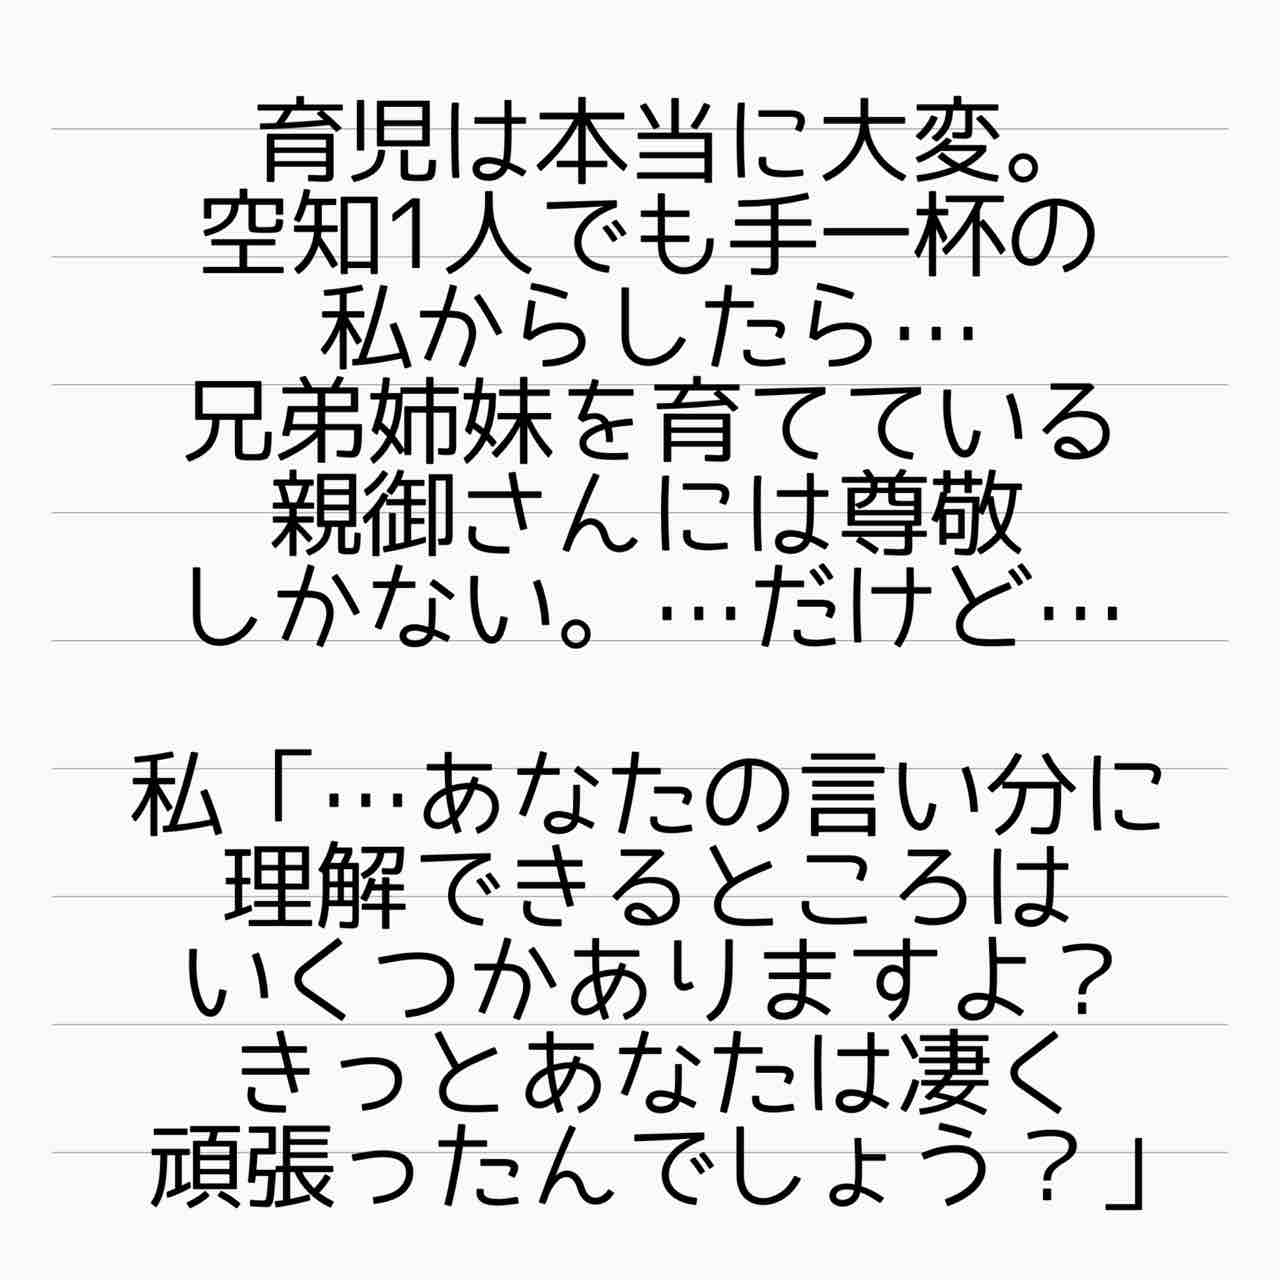 育児は本当に大変。
空知1人でも手一杯の
私からしたら…
兄弟姉妹を育てている
親御さんには尊敬
しかない。…だけど…
私「…あなたの言い分に
理解できるところは
いくつかありますよ？
きっとあなたは凄く
頑張ったんでしょう？」